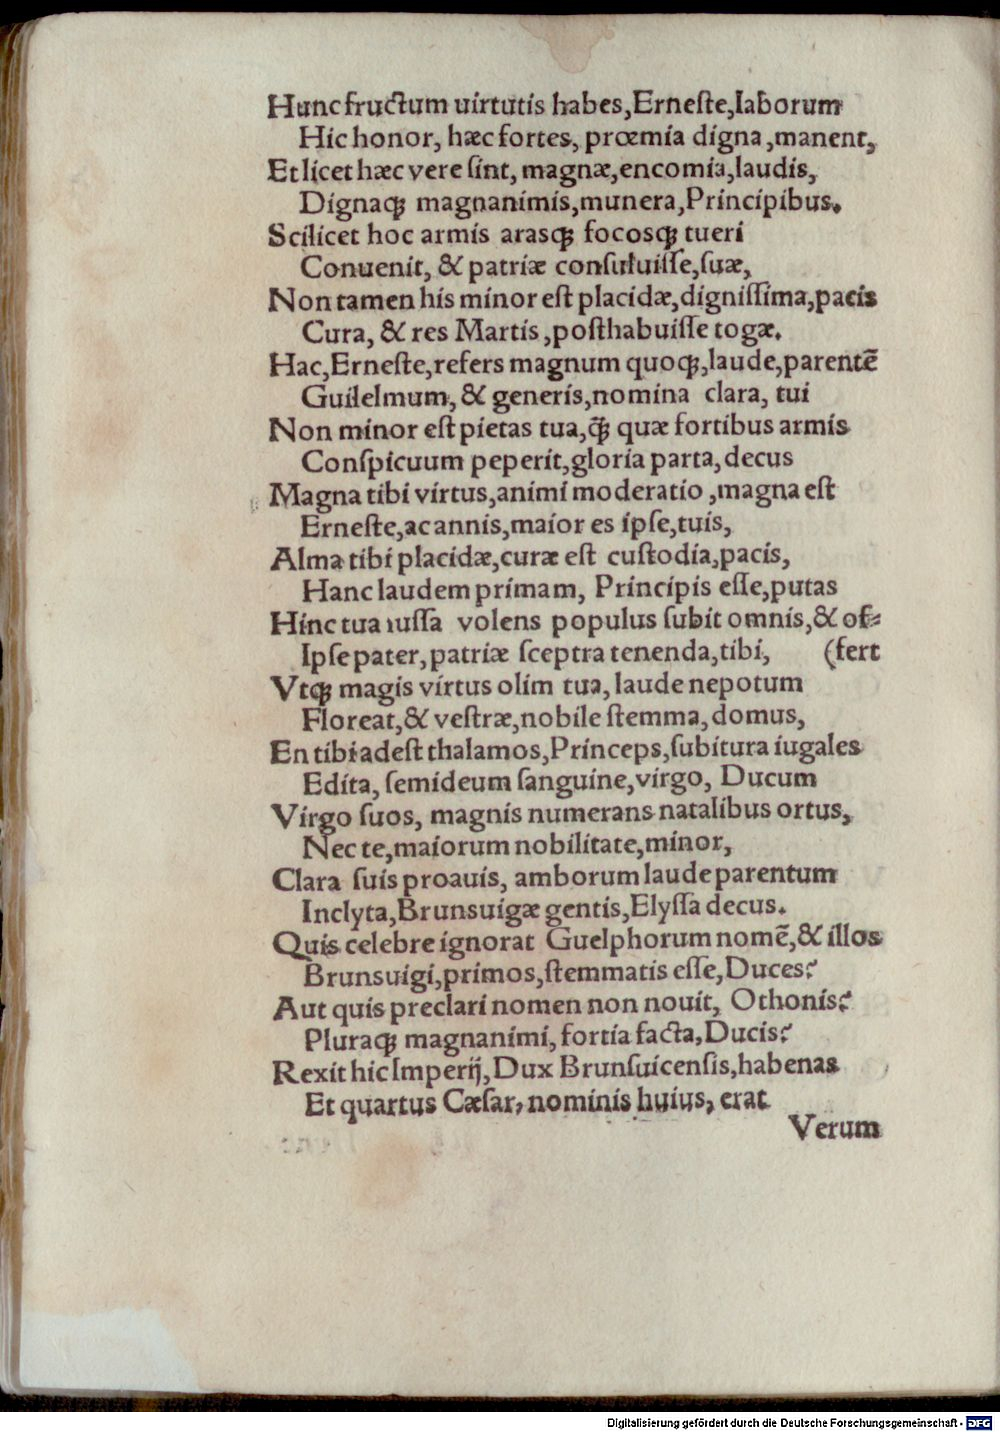 Hunc fructum uirtutis habes,Erneſte,laborum
Hic honor, hæc fortes, prœmia digna,manent,
Et licet hæc vere ſint, magnæ,encomia,laudis,
Dignaqꝫ magnanimis,munera,Principibus.
Scilicet hoc armis arasqꝫ focosqꝫ tueri
Conuenit, & patriæ conſuluiſſe,ſuæ,
Non tamen his minor eſt placidæ,digniſſima,pacis
Cura, & res Martis,poſthabuiſſe togæ.
Hac,Erneſte,refers magnum quoqꝫ,laude,parentẽ
Guilelmum, & generis,nomina clara, tui
Non minor eſt pietas tua,q̃ꝫ quæ fortibus armis
Conſpicuum peperit,gloria parta,decus
Magna tibi virtus,animi moderatio,magna eſt
Erneſte,ac annis,maior es ipſe,tuis,
Alma tibi placidæ,curæ eſt cuſtodia,pacis,
Hanc laudem primam, Principis eſſe,putas
Hinc tua iuſſa volens populus ſubit omnis,& of⸗
Ipſe pater,patriæ ſceptra tenenda,tibi, (fert
Vtqꝫ magis virtus olim tua, laude nepotum
Floreat,& veſtræ,nobile ſtemma, domus,
En tibi adeſt thalamos,Princeps,ſubitura iugales
Edita, ſemideum ſanguine,virgo, Ducum
Virgo ſuos, magnis numerans natalibus ortus,
Nec te,maiorum nobilitate,minor,
Clara ſuis proauis, amborum laude parentum
Inclyta,Brunsuigæ gentis,Elyſſa decus.
Quis celebre ignorat Guelphorum nomẽ,& illos
Brunsuigi,primos,ſtemmatis eſſe,Duces?
Aut quis preclari nomen non nouit, Othonis?
Pluraqꝫ magnanimi,fortia facta,Ducis?
Rexit hic Imperij,Dux Brunſuicenſis,habenas
Et quartus Cæſar,nominis huius, erat
Verum
Digitalisierung gefördert durch die Deutsche Forschungsgemeinschaft - DFG